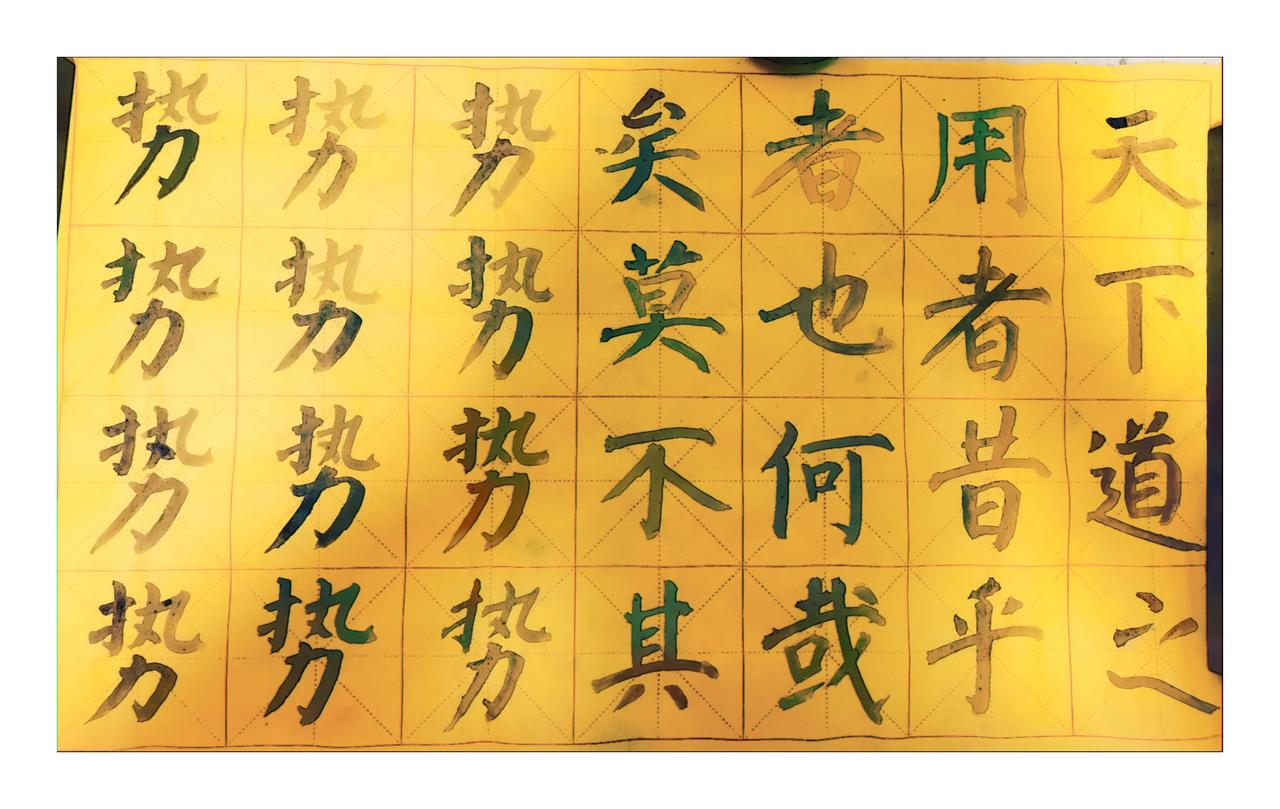 天下道之
用者昔乎
者也何哉
矣莫不其
势势势势
势势势势
势势势势